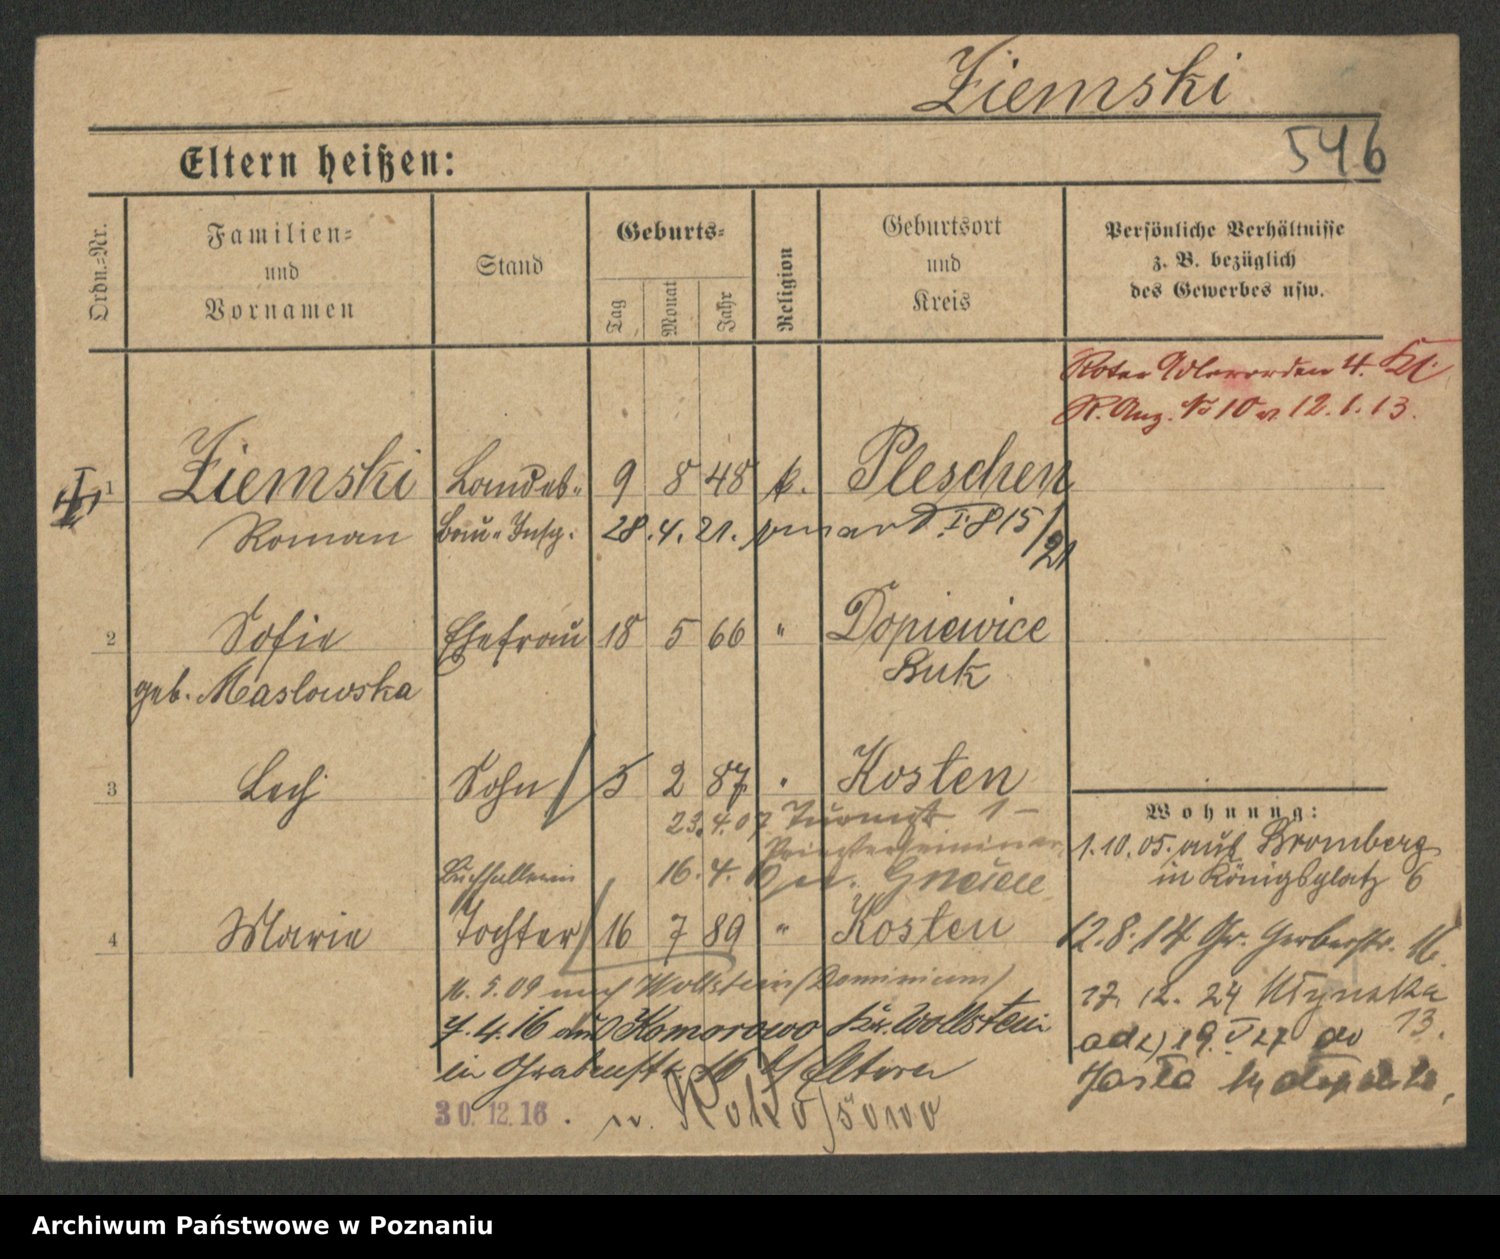 Ziemski
546
Eltern heißen:
Ordn.=Nr.
Familien=
und
Vornamen
Stand
Geburts=
Tag
Monat
Jahr
Religion
Geburtsort
und
Kreis
Persönliche Verhältnisse
z. B. bezüglich
des Gewerbes usw.
Roter Adlerorden 4. Kl.
R. Anz. No 10 v. 12.1.13.
1 Ziemski Landes= 9 8 48 k. Pleschen
Roman Bau=Insp. 28.4.21. zmarł I 815/21
2 Sofie Ehefrau 18 5 66 " Dopiewice
geb. Maslowska Buk
3 Lech Sohn 5 2 87 " Kosten
23.4.07
Wohnung:
1.10.05. aus Bromberg
in Königsplatz 6
Priesterseminar
Buchhalterin 16.4. Gnesen
4 Marie Tochter 16 7 89 " Kosten
12.8.14 Gr. Gerberstr. 16.
16.5.09 nach Wollstein (Dominium)
17.12.24 Młyńska
13.
7.4.16 aus Komorowo Kr. Wollstein
in Grabenstr. Eltern
19.V 27 do
Jasła
30.12.16. n. Rokossowo
Archiwum Państwowe w Poznaniu